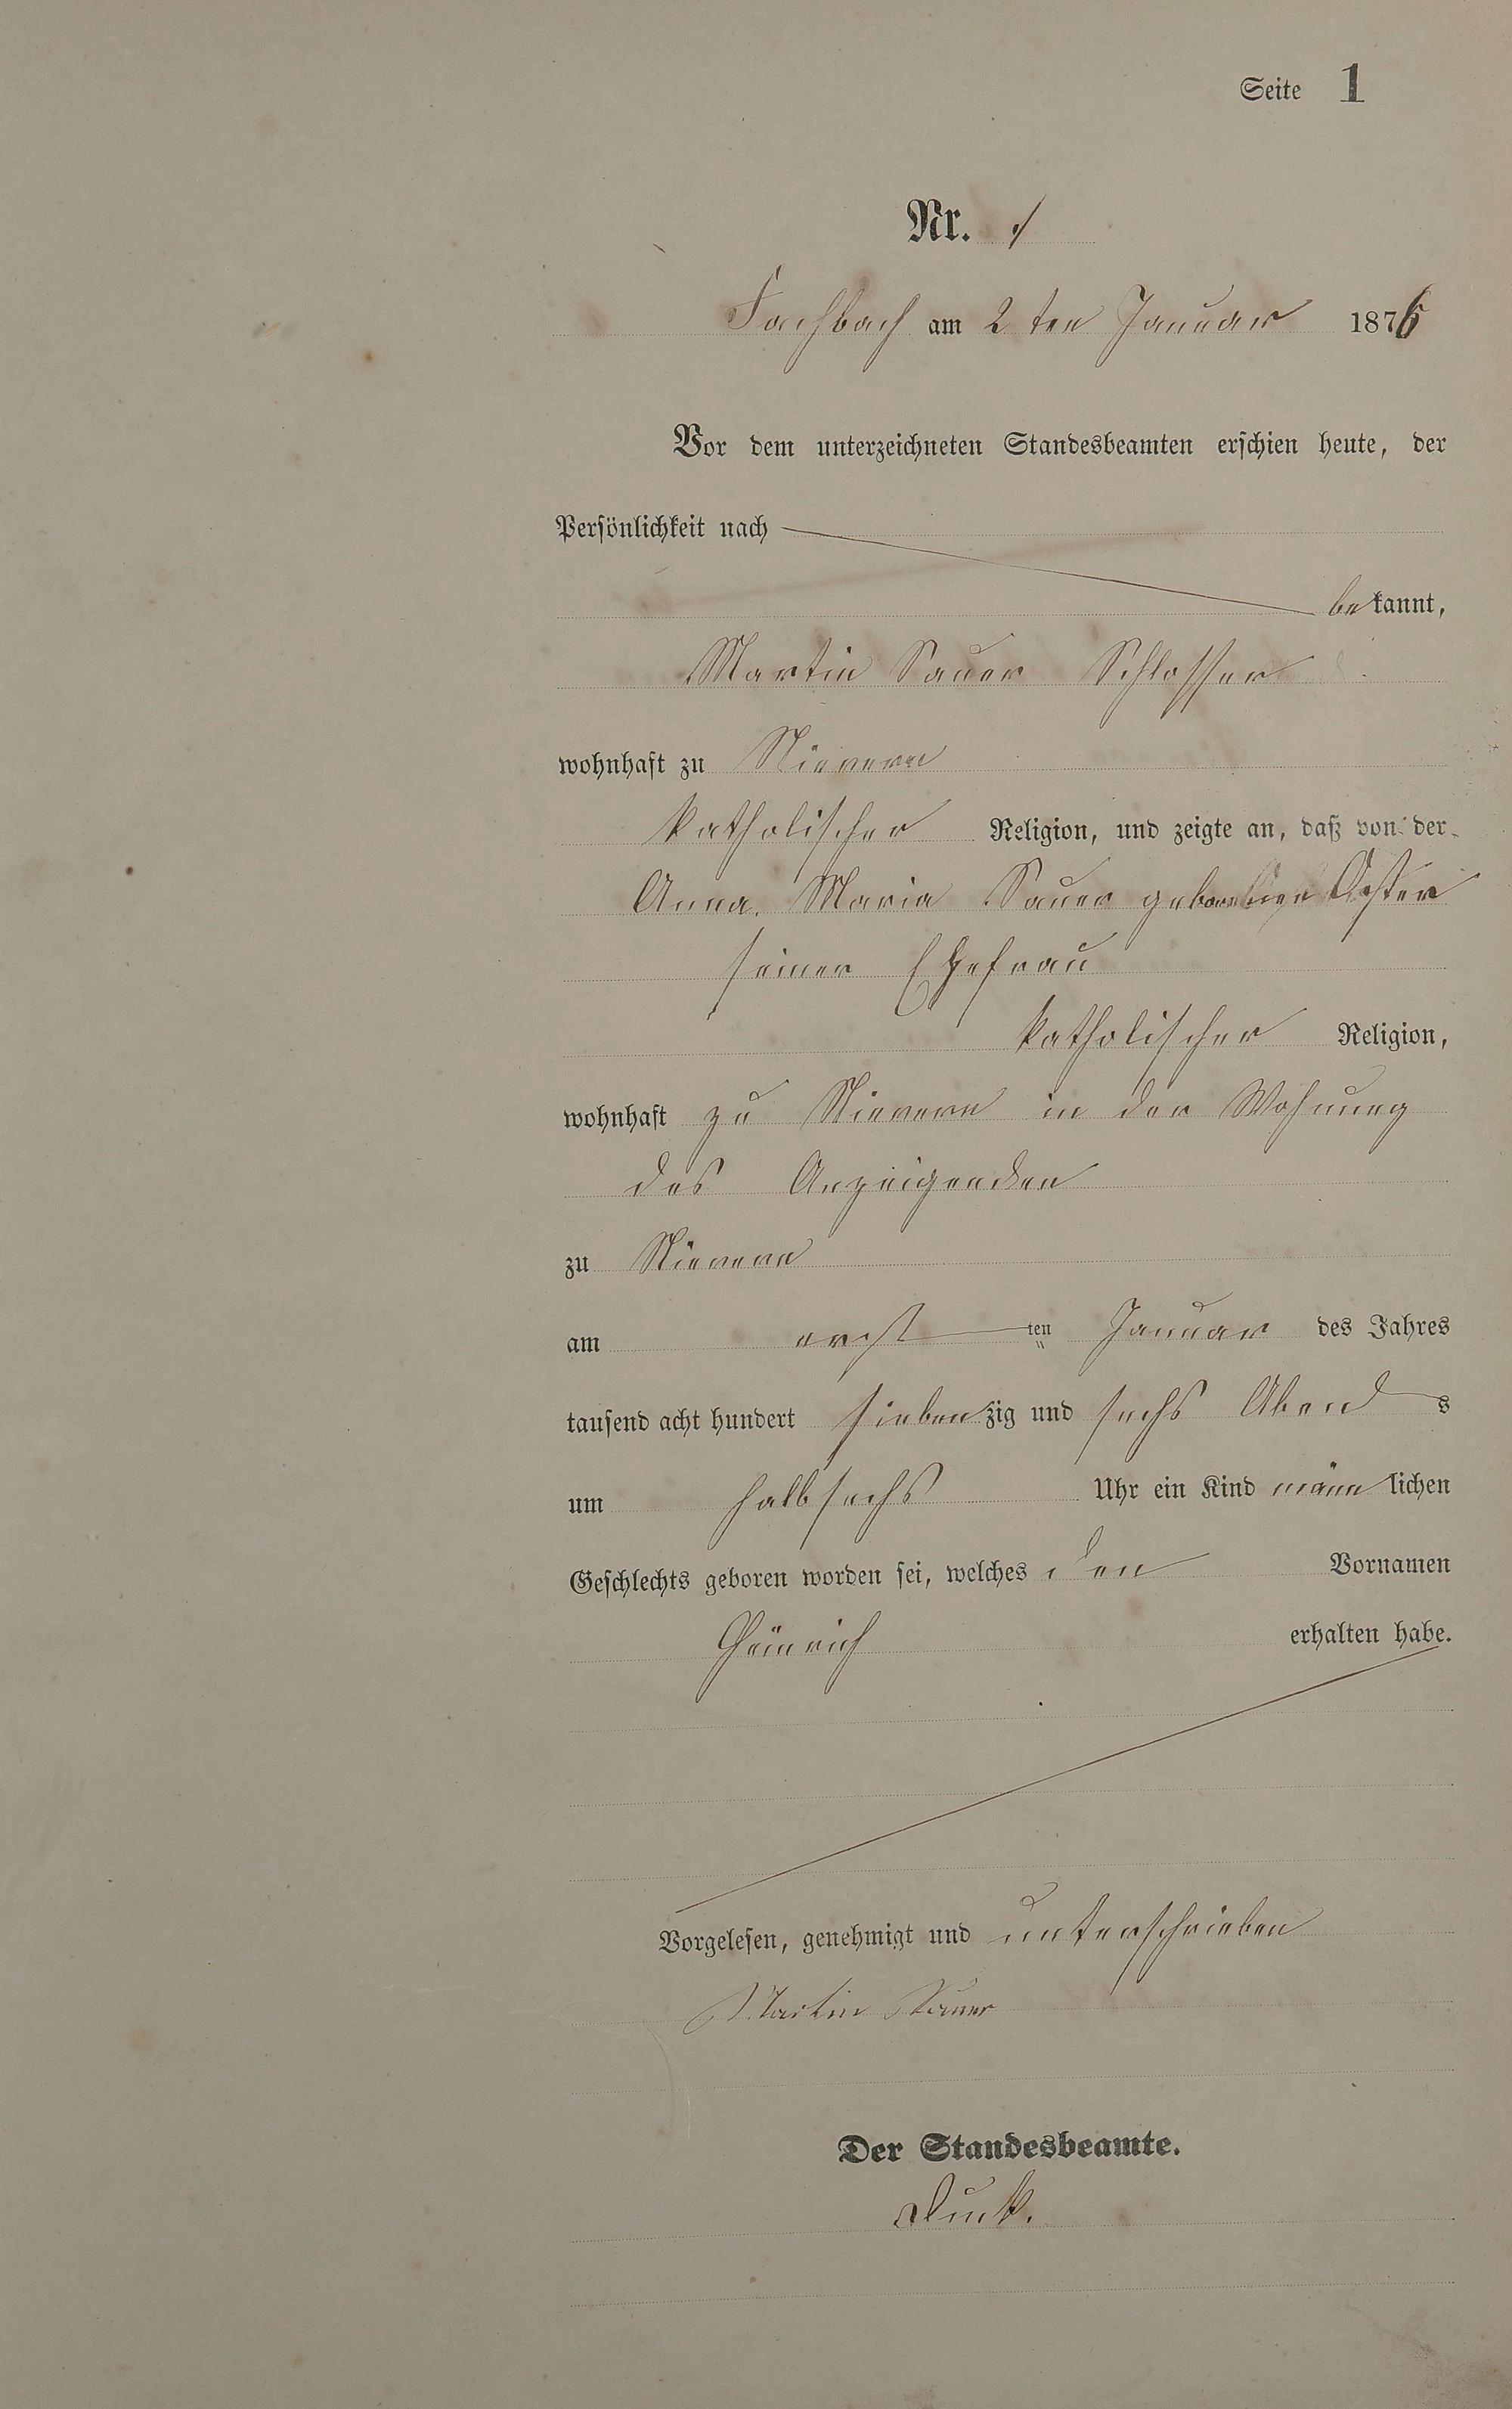 Seite 1
Nr. 1
Fachbach am 2 ten Januar 1876
Vor dem unterzeichneten Standesbeamten erschien heute, der
Persönlichkeit nach
bekannt,
Martin Sauer Schlosser
wohnhaft zu Nievern
katholischer Religion, und zeigte an, daß von der
Anna Maria Sauer geborene Oster
seiner Ehefrau
katholischer Religion,
wohnhaft zu Nievern in der Wohnung
des Anzeigenden
zu Nievern
am erst ten Januar des Jahres
tausend acht hundert siebenzig und sechs Abends
um halb sechs Uhr ein Kind männlichen
Geschlechts geboren worden sei, welches den Vornamen
Heinrich erhalten habe.
Vorgelesen, genehmigt und unterschrieben
Martin Sauer
Der Standesbeamte.